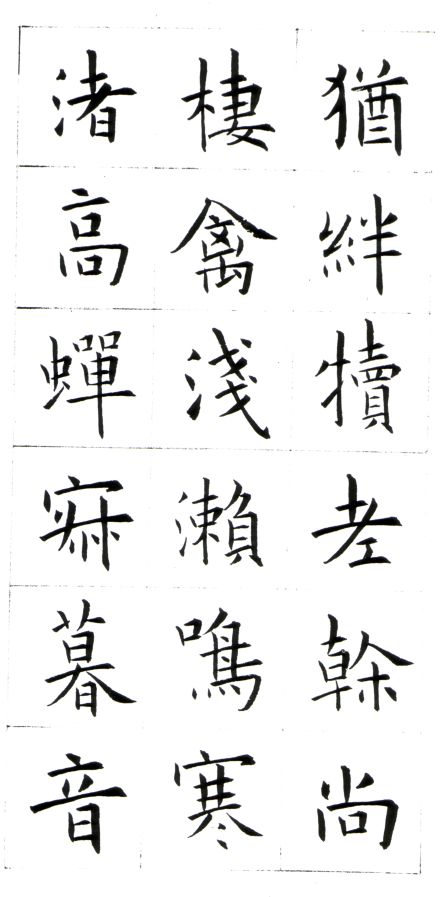 猶絆犢老榦尚
棲禽淺瀨鳴寒
渚高蟬寂暮音